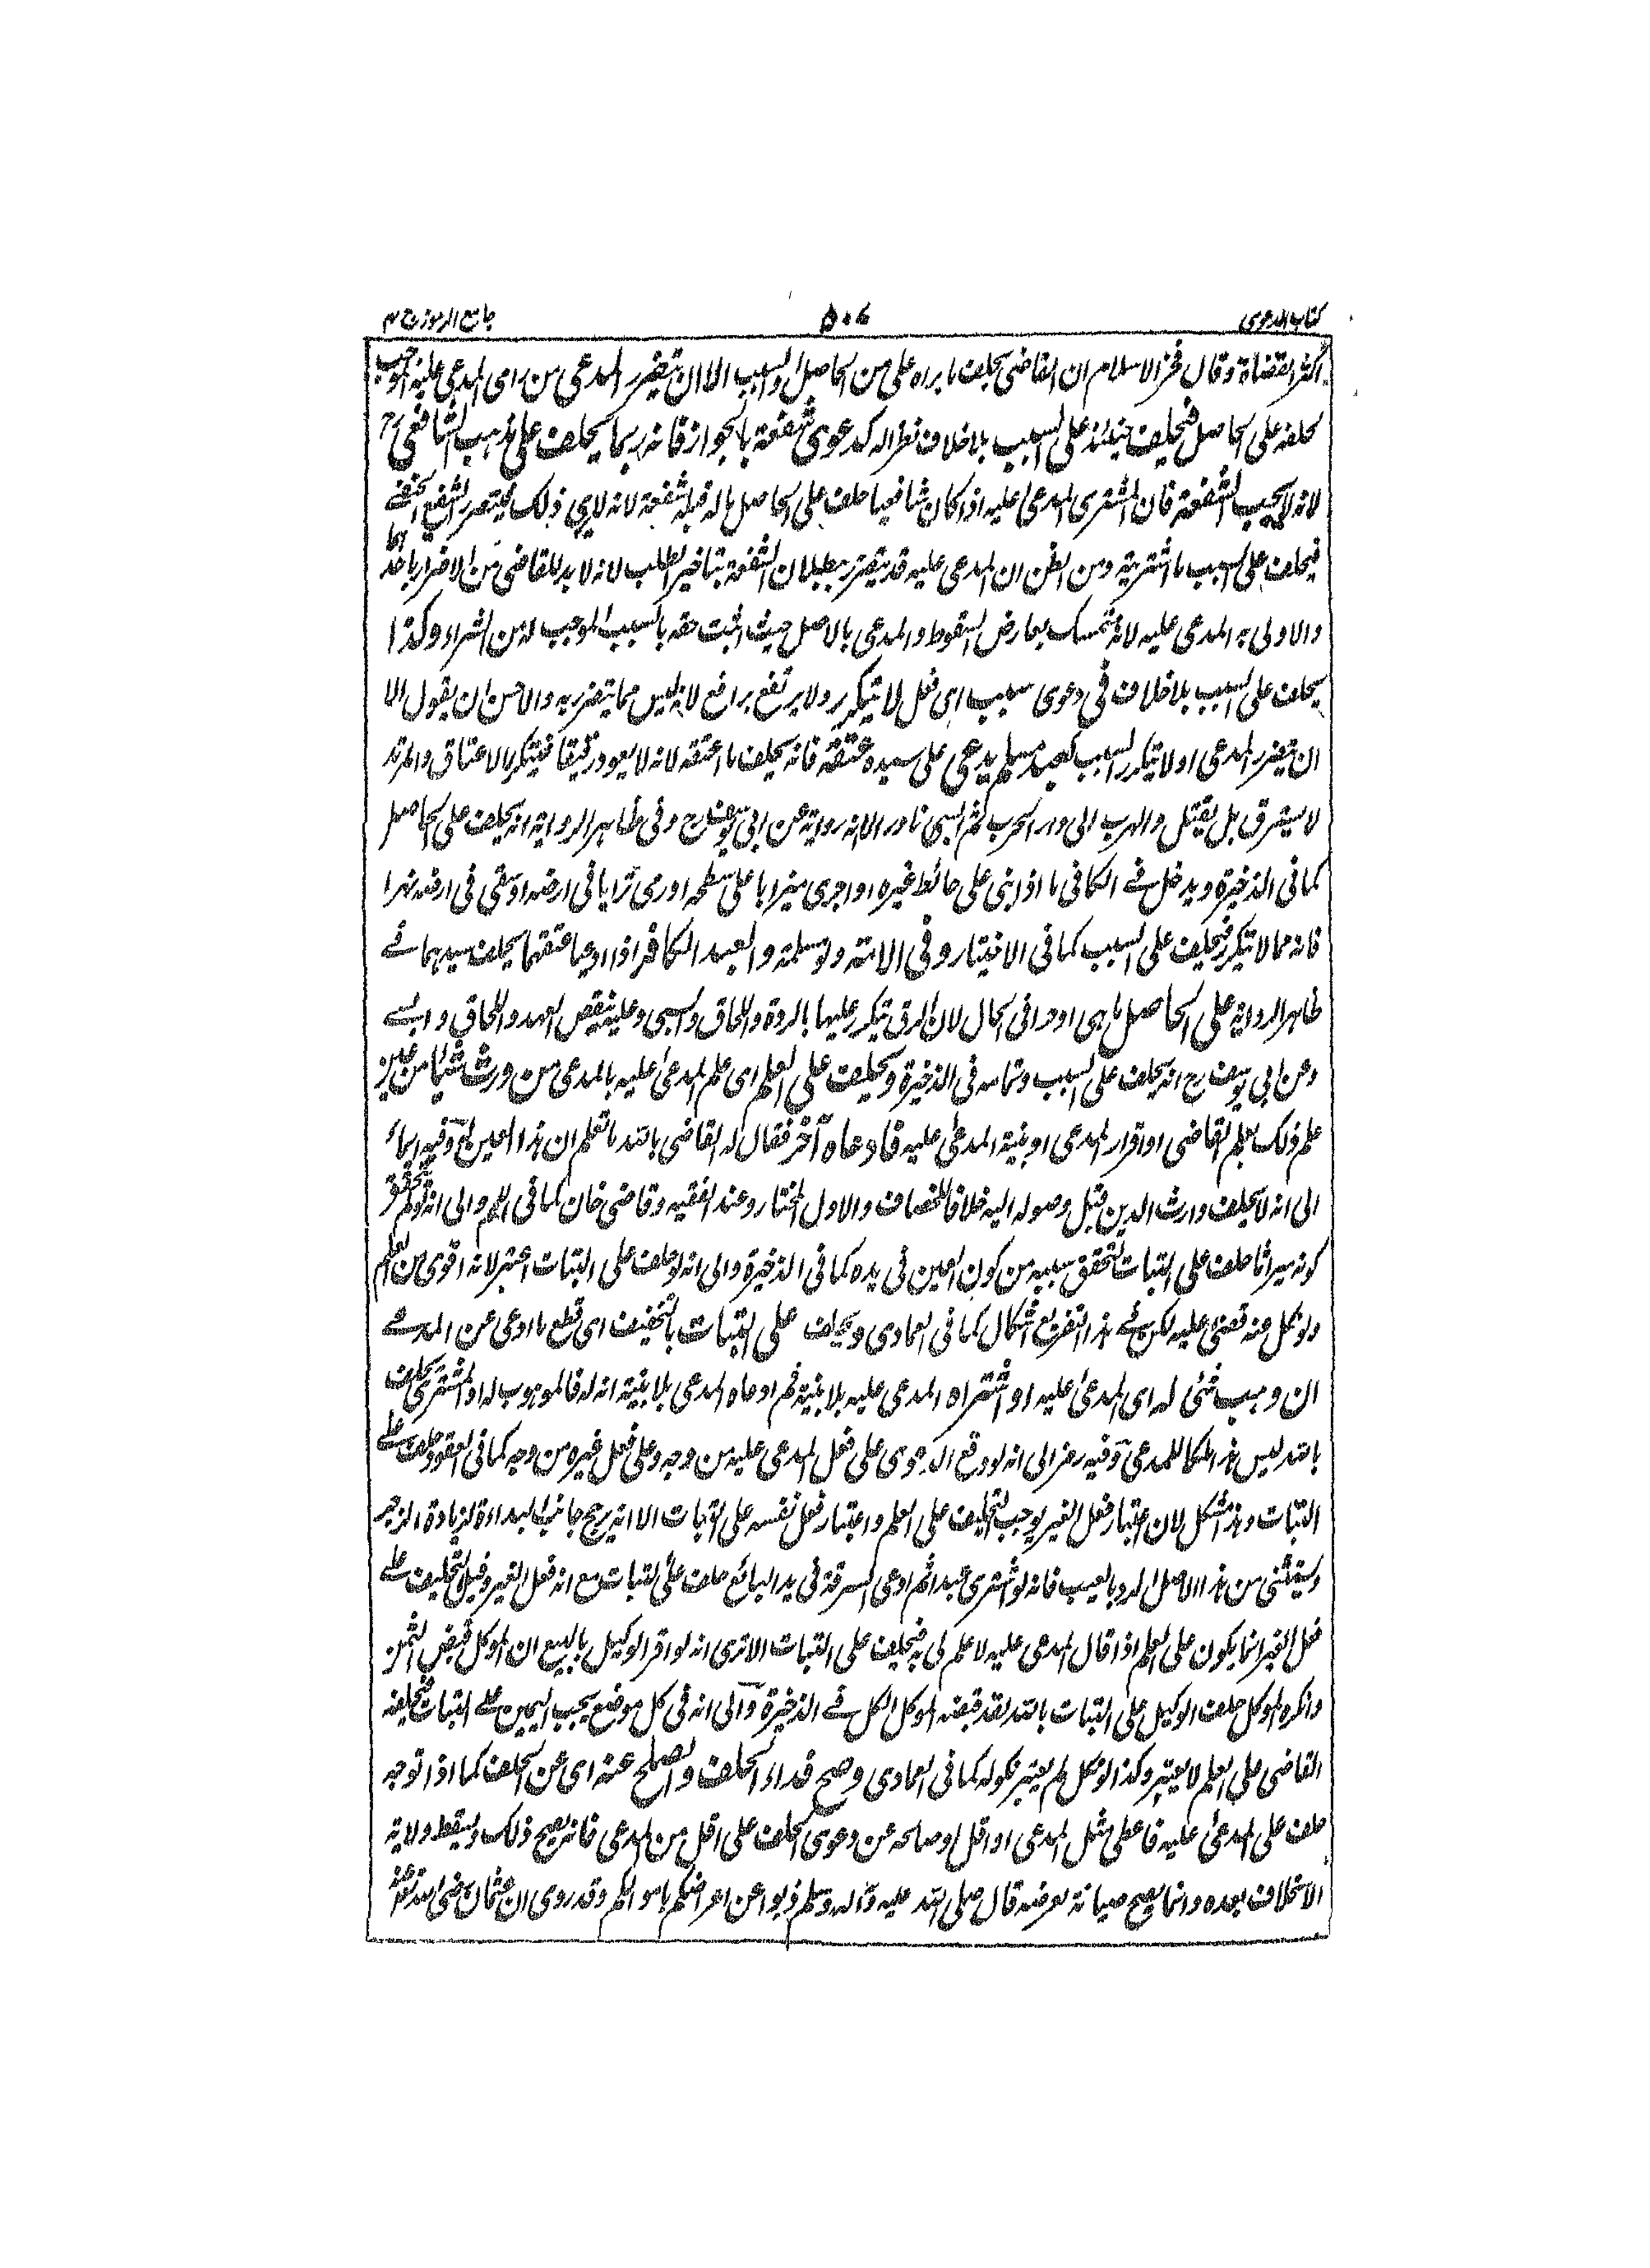 كتاب الدعوى ٥٠٧ جامع الرموز ج ٢
اكثر القضاة وقال فخر الاسلام ان القاضى يحلف ما يراه على من الحاصل والسبب الا ان يتضرر المدعى من رامى المدعى عليه
تحلفه على الحاصل فيحلف حينئذ على السبب بلا خلاف نظرا له كدعوى شفعة بالجوار فانه ربما يحلف على مذهب الشافعى رح
لانه لا يجب الشفعة فان المشترى المدعى عليه اذا كان شافعيا حلف على الحاصل ما له قبله شفعة لانه لا يرى ذلك فيتضرر الشفيع الحنفى
فيحلف على السبب ما اشتريته ومن الظن ان المدعى عليه قد يتضرر ببطلان الشفعة بتاخير الطلب لانه لا بد للقاضى من الاضرار باحدهما
والاولى به المدعى عليه لانه متمسك بعارض السقوط والمدعى بالاصل حيث اثبت حقه بالسبب الموجب له من الشراء وكذا
يحلف على السبب بلا خلاف فى دعوى سبب اى فعل لا يتكرر ولا يرتفع برافع لانه ليس مما يتضرر به والاحسن ان يقول الا
ان يتضرر المدعى او لا يتكرر السبب كعبد مسلم يدعى على سيده عتقه فانه يحلف ما اعتقه لانه لا يعود رقيقا فيتكرر الاعتاق والمرتد
لا يسترق بل يقتل والهرب الى دار الحرب ثم السبى نادر الا انه رواية عن ابى يوسف رح وفى ظاهر الرواية انه يحلف على الحاصل
كما فى الذخيرة ويدخل فى الكافى ما اذا بنى على حائط غيره او اجرى ميزابا على سطحه او رمى ترابا فى ارضه او سقى فى ارضه نهرا
فانه مما لا يتكرر فيحلف على السبب كما فى الاختيار وفى الامة ولو مسلمة والعبد الكافر اذا ادعيا عتقهما يحلف سيدهما فى
ظاهر الرواية على الحاصل ما هى او هو حر فى الحال لان الرق يتكرر عليها بالردة واللحاق والسبى وعليه بنقض العهد واللحاق والسبى
وعن ابى يوسف رح انه يحلف على السبب وتمامه فى الذخيرة ويحلف على العلم اى علم المدعى عليه بالمدعى من ورث شيئا من عين
علم ذلك بعلم القاضى او اقرار المدعى او بنية المدعى عليه فادعاه آخر فقال له القاضى بالله ما تعلم ان هذا العين له وفيه ايماء
الى انه لا يحلف وارث الدين قبل وصوله اليه خلافا للخصاف والاول المختار وعند الفقيه وقاضى خان كما فى المهم والى انه لو لم يتحقق
كونه ميراثا حلف على البتات لتحقق سببه من كون العين فى يده كما فى الذخيرة والى انه لو حلف على البتات اعتبر لانه اقوى من العلم
ولو نكل عنه قضى عليه لكن فى هذا التفريع اشكال كما فى العمادى ويحلف على البتات بالتخفيف اى قطع ما ادعى عن المدعى
ان وهب شئ له اى المدعى عليه او اشتراه المدعى عليه بلا بنية ثم ادعاه المدعى بلا بنية انه له فالموهوب له او المشترى يحلف
بالله ليس هذا ملكا للمدعى وفيه رمز الى انه لو وقع الدعوى على فعل المدعى عليه من وجه وعلى فعل غيره من وجه كما فى العقود حلف على
البتات وهذا مشكل لان اعتبار فعل الغير يوجب التحليف على العلم واعتبار فعل نفسه على البتات الا انه يرجح جانب البداءة لزيادة الزجر
ويستثنى من هذا الاصل الرد بالعيب فانه لو اشترى عبدا ثم ادعى السرقة فى يد البائع حلف على البتات مع انه فعل الغير وقيل التحليف على
فعل الغير انما يكون على العلم اذا قال المدعى عليه لا علم لى به فيحلف على البتات الا ترى انه لو اقر الوكيل بالبيع ان الموكل قبض الثمن
وانكره الموكل حلف الوكيل على البتات بالله لقد قبضه الموكل الكل فى الذخيرة والى انه فى كل موضع يجب اليمين على البتات فتحليفه
القاضى على العلم لا يعتبر وكذا لو نكل لم يعتبر نكوله كما فى العمادى وصح فداء الحلف والصلح عنه اى عن الحلف كما اذا توجه
حلف على المدعى عليه فاعطى مثل المدعى او اقل او صالحه عن دعوى الحلف على اقل من المدعى فانه يصح ذلك ويسقط ولاية
الاستحلاف بعده وانما يصح صيانة لعرضه قال صلى الله عليه وآله وسلم ذبوا عن اعراضكم باموالكم وقد روى ان عثمان رضى الله تعالى عنه